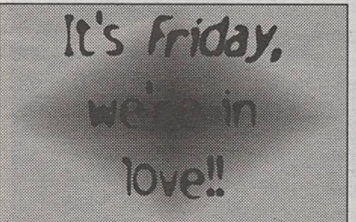 It's Friday,
we're in
love!!